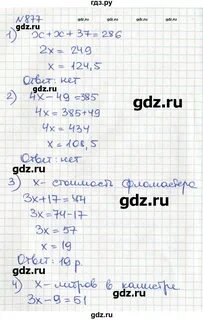 №877
1) x + x + 37 = 286
2x = 249
x = 124,5
Ответ: нет
2) 4x - 49 = 385
4x = 385+49
4x = 434
x = 108,5
Ответ: нет
3) x - стоимость фломастера
3x + 17 = 74
3x = 74-17
3x = 57
x = 19
Ответ: 19 р.
4) x - литров в канистре
3x - 9 = 51
gdz.ru
gdz.ru
gdz.ru
gdz.ru
gdz.ru
gdz.ru
gdz.ru